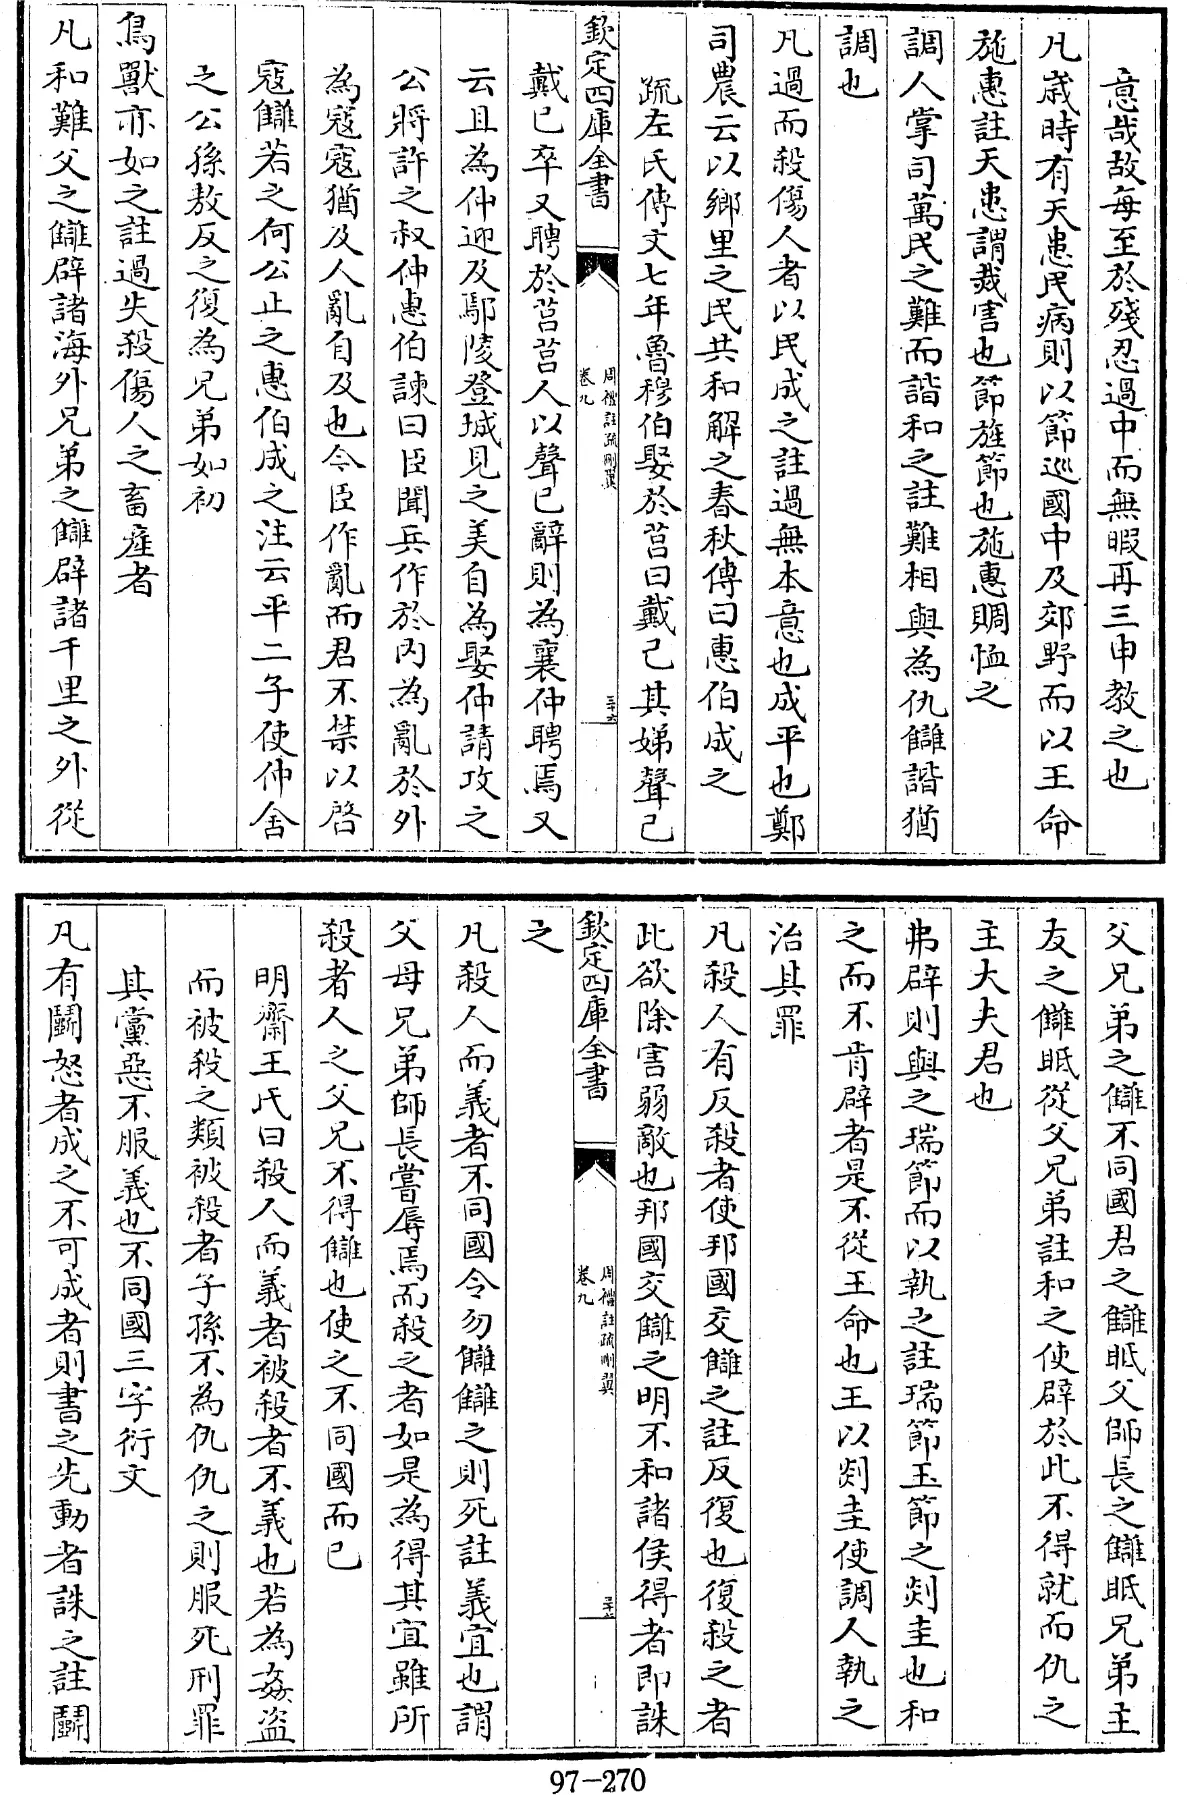 意哉故每至於殘忍過中而無暇再三申教之也
凡歲時有天患民病則以節巡國中及郊野而以王命
施惠註天患謂烖害也節旌節也施惠賙恤之
調人掌司萬民之難而諧和之註難相與為仇讎諧猶
調也
凡過而殺傷人者以民成之註過無本意也成平也鄭
司農云以鄉里之民共和解之春秋傳曰惠伯成之
疏左氏傳文七年魯穆伯娶於莒曰戴己其娣聲己
欽定四庫全書
周禮註疏刪翼
卷九
三十六
戴己卒又聘於莒莒人以聲己辭則為襄仲聘焉又
云且為仲迎及鄢陵登城見之美自為娶仲請攻之
公將許之叔仲惠伯諫曰臣聞兵作於內為亂於外
為寇寇猶及人亂自及也今臣作亂而君不禁以啓
寇讎若之何公止之惠伯成之注云平二子使仲舍
之公孫敖反之復為兄弟如初
鳥獸亦如之註過失殺傷人之畜產者
凡和難父之讎辟諸海外兄弟之讎辟諸千里之外從
父兄弟之讎不同國君之讎眡父師長之讎眡兄弟主
友之讎眡從父兄弟註和之使辟於此不得就而仇之
主大夫君也
弗辟則與之瑞節而以執之註瑞節玉節之剡圭也和
之而不肯辟者是不從王命也王以剡圭使調人執之
治其罪
凡殺人有反殺者使邦國交讎之註反復也復殺之者
此欲除害弱敵也邦國交讎之明不和諸侯得者即誅
欽定四庫全書
周禮註疏刪翼
卷九
之
凡殺人而義者不同國令勿讎讎之則死註義宜也謂
父母兄弟師長嘗辱焉而殺之者如是為得其宜雖所
殺者人之父兄不得讎也使之不同國而已
明齋王氏曰殺人而義者被殺者不義也若為姦盜
而被殺之類被殺者子孫不為仇仇之則服死刑罪
其黨惡不服義也不同國三字衍文
凡有鬭怒者成之不可成者則書之先動者誅之註鬭
97-270